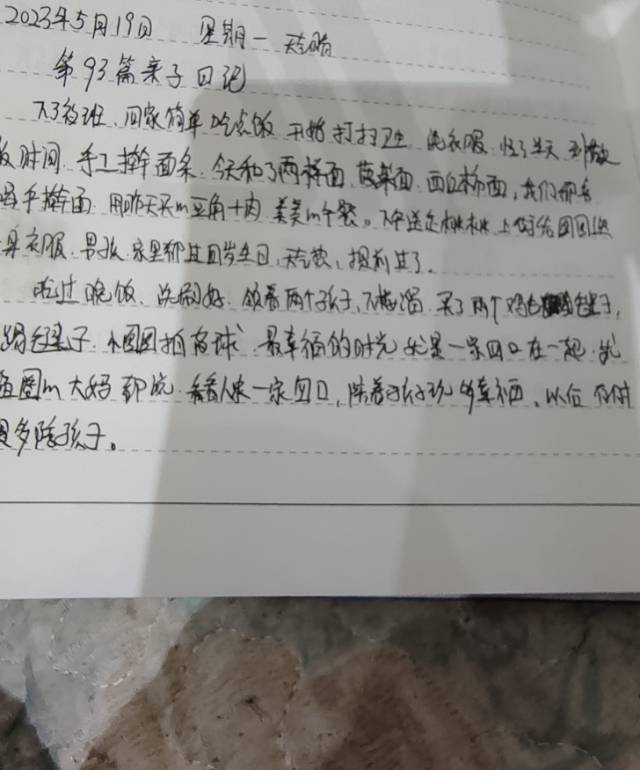 2023年5月19日 星期一 天气晴
第93篇亲子日记
下了夜班,回家简单吃点饭,开始打扫卫生,洗衣服,忙了半天,到做
饭时间,手工擀面条,今天和了两样面,菠菜面,西红柿面,我们都喜
喝手擀面,用昨天买的五角十肉,美美的一餐。下午送走
身衣服,男孩,家里都过四岁生日,天气热,提前过了。
吃过晚饭,洗刷好,领着两个孩子,下楼遛,买了两个
踢毽子,小圆圆拍皮球,最幸福的时光 就是一家四口在一起,就
圆的大妈都说,看看人家一家四口,陪着孩子玩多幸福,以后 有时
要多陪孩子。